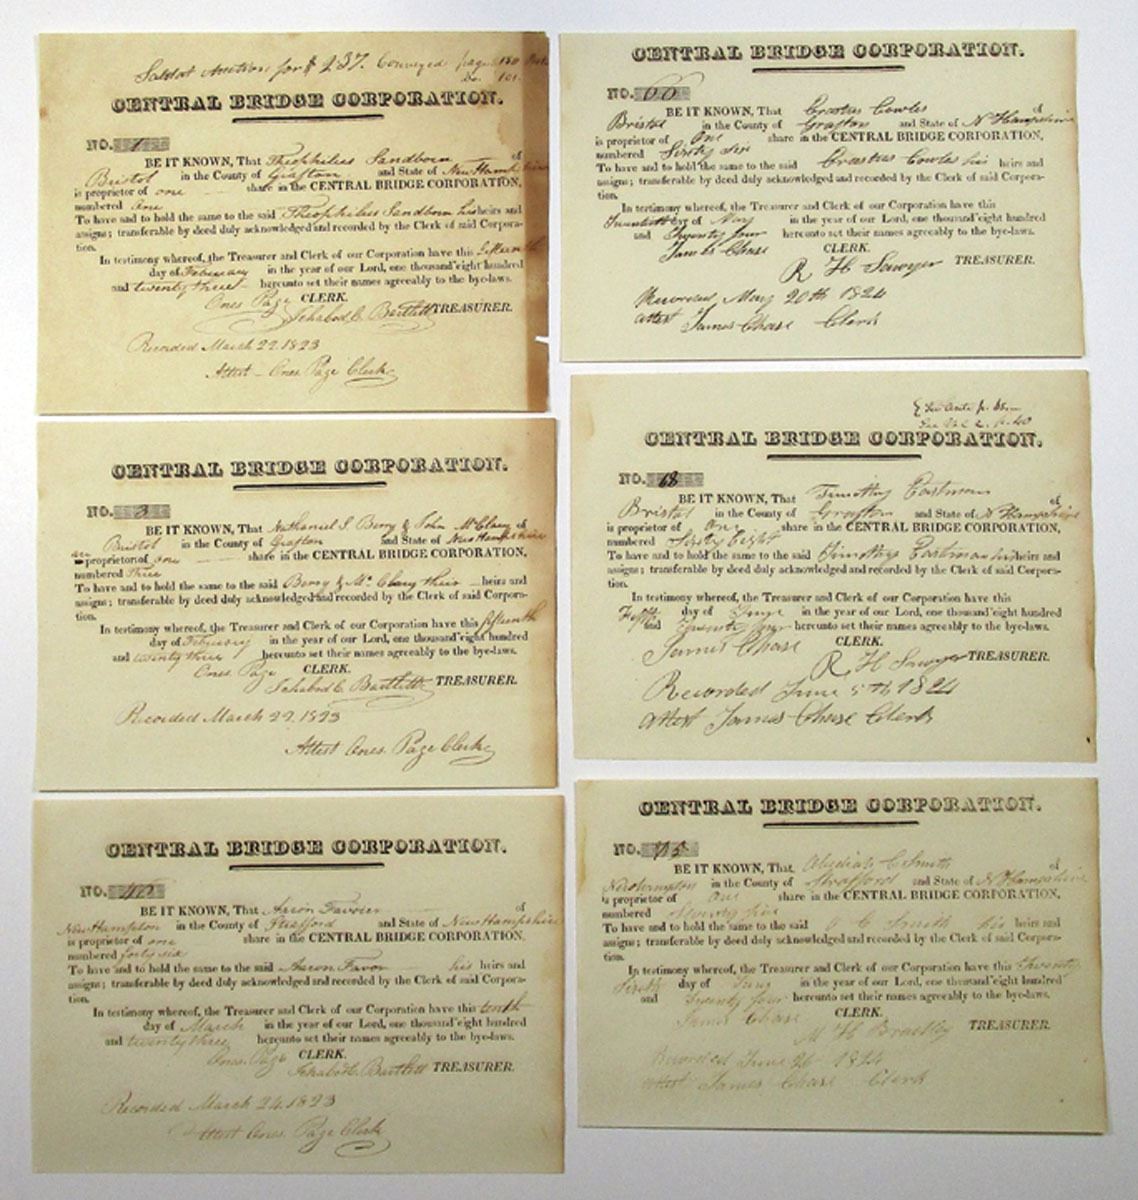 Sold at Auction for $2.37. Conveyed page 150
Do. 101.
CENTRAL BRIDGE CORPORATION.
NO. 1
BE IT KNOWN, That Theophilus Sandborn of
Bristol in the County of Grafton and State of New Hampshire
is proprietor of one share in the CENTRAL BRIDGE CORPORATION,
numbered One
To have and to hold the same to the said Theophilus Sandborn his heirs and
assigns; transferable by deed duly acknowledged and recorded by the Clerk of said Corpora-
tion.
In testimony whereof, the Treasurer and Clerk of our Corporation have this fifteenth
day of February in the year of our Lord, one thousand eight hundred
and twenty three hereunto set their names agreeably to the bye-laws.
Ones. Page CLERK.
Ichabod C. Bartlett TREASURER.
Recorded March 22. 1823
Attest - Ones. Page Clerk
CENTRAL BRIDGE CORPORATION.
NO. 3
BE IT KNOWN, That Nathaniel S. Berry & John McClary of
Bristol in the County of Grafton and State of New Hampshire
proprietor of one share in the CENTRAL BRIDGE CORPORATION,
numbered Three
To have and to hold the same to the said Berry & Mc Clary their heirs and
assigns; transferable by deed duly acknowledged and recorded by the Clerk of said Corpora-
tion.
In testimony whereof, the Treasurer and Clerk of our Corporation have this fifteenth
day of February in the year of our Lord, one thousand eight hundred
and twenty three hereunto set their names agreeably to the bye-laws.
Ones. Page CLERK.
Ichabod C. Bartlett TREASURER.
Recorded March 22. 1823
Attest Ones. Page Clerk
CENTRAL BRIDGE CORPORATION.
NO. 46
BE IT KNOWN, That Aaron Favor of
New Hampton in the County of Strafford and State of New Hampshire
is proprietor of one share in the CENTRAL BRIDGE CORPORATION,
numbered forty six
To have and to hold the same to the said Aaron Favor his heirs and
assigns; transferable by deed duly acknowledged and recorded by the Clerk of said Corpora-
tion.
In testimony whereof, the Treasurer and Clerk of our Corporation have this tenth
day of March in the year of our Lord, one thousand eight hundred
and twenty three hereunto set their names agreeably to the bye-laws.
Ones. Page CLERK.
Ichabod C. Bartlett TREASURER.
Recorded March 24. 1823
Attest Ones. Page Clerk
CENTRAL BRIDGE CORPORATION.
NO. 66
BE IT KNOWN, That Erastus Cowles of
Bristol in the County of Grafton and State of N Hampshire
is proprietor of One share in the CENTRAL BRIDGE CORPORATION,
numbered Sixty Six
To have and to hold the same to the said Erastus Cowles his heirs and
assigns; transferable by deed duly acknowledged and recorded by the Clerk of said Corpora-
tion.
In testimony whereof, the Treasurer and Clerk of our Corporation have this
Twentieth day of May in the year of our Lord, one thousand eight hundred
and Twenty four hereunto set their names agreeably to the bye-laws.
James Chase CLERK.
R H Sawyer TREASURER.
Recorded May 20th 1824
attest James Chase Clerk
CENTRAL BRIDGE CORPORATION.
NO. 68
BE IT KNOWN, That Timothy Eastman of
Bristol in the County of Grafton and State of N Hampshire
is proprietor of One share in the CENTRAL BRIDGE CORPORATION,
numbered Sixty Eight
To have and to hold the same to the said Timothy Eastman his heirs and
assigns; transferable by deed duly acknowledged and recorded by the Clerk of said Corpora-
tion.
In testimony whereof, the Treasurer and Clerk of our Corporation have this
Fifth day of June in the year of our Lord, one thousand eight hundred
and Twenty four hereunto set their names agreeably to the bye-laws.
James Chase CLERK.
R H Sawyer TREASURER.
Recorded June 5th 1824
attest James Chase Clerk
CENTRAL BRIDGE CORPORATION.
NO. 75
BE IT KNOWN, That Obediah C Smith of
New hampton in the County of Strafford and State of N Hampshire
is proprietor of One share in the CENTRAL BRIDGE CORPORATION,
numbered Seventy five
To have and to hold the same to the said O C Smith his heirs and
assigns; transferable by deed duly acknowledged and recorded by the Clerk of said Corpora-
tion.
In testimony whereof, the Treasurer and Clerk of our Corporation have this Twenty
Sixth day of June in the year of our Lord, one thousand eight hundred
and Twenty four hereunto set their names agreeably to the bye-laws.
James Chase CLERK.
H Bradley TREASURER.
Recorded June 26 1824
attest James Chase Clerk